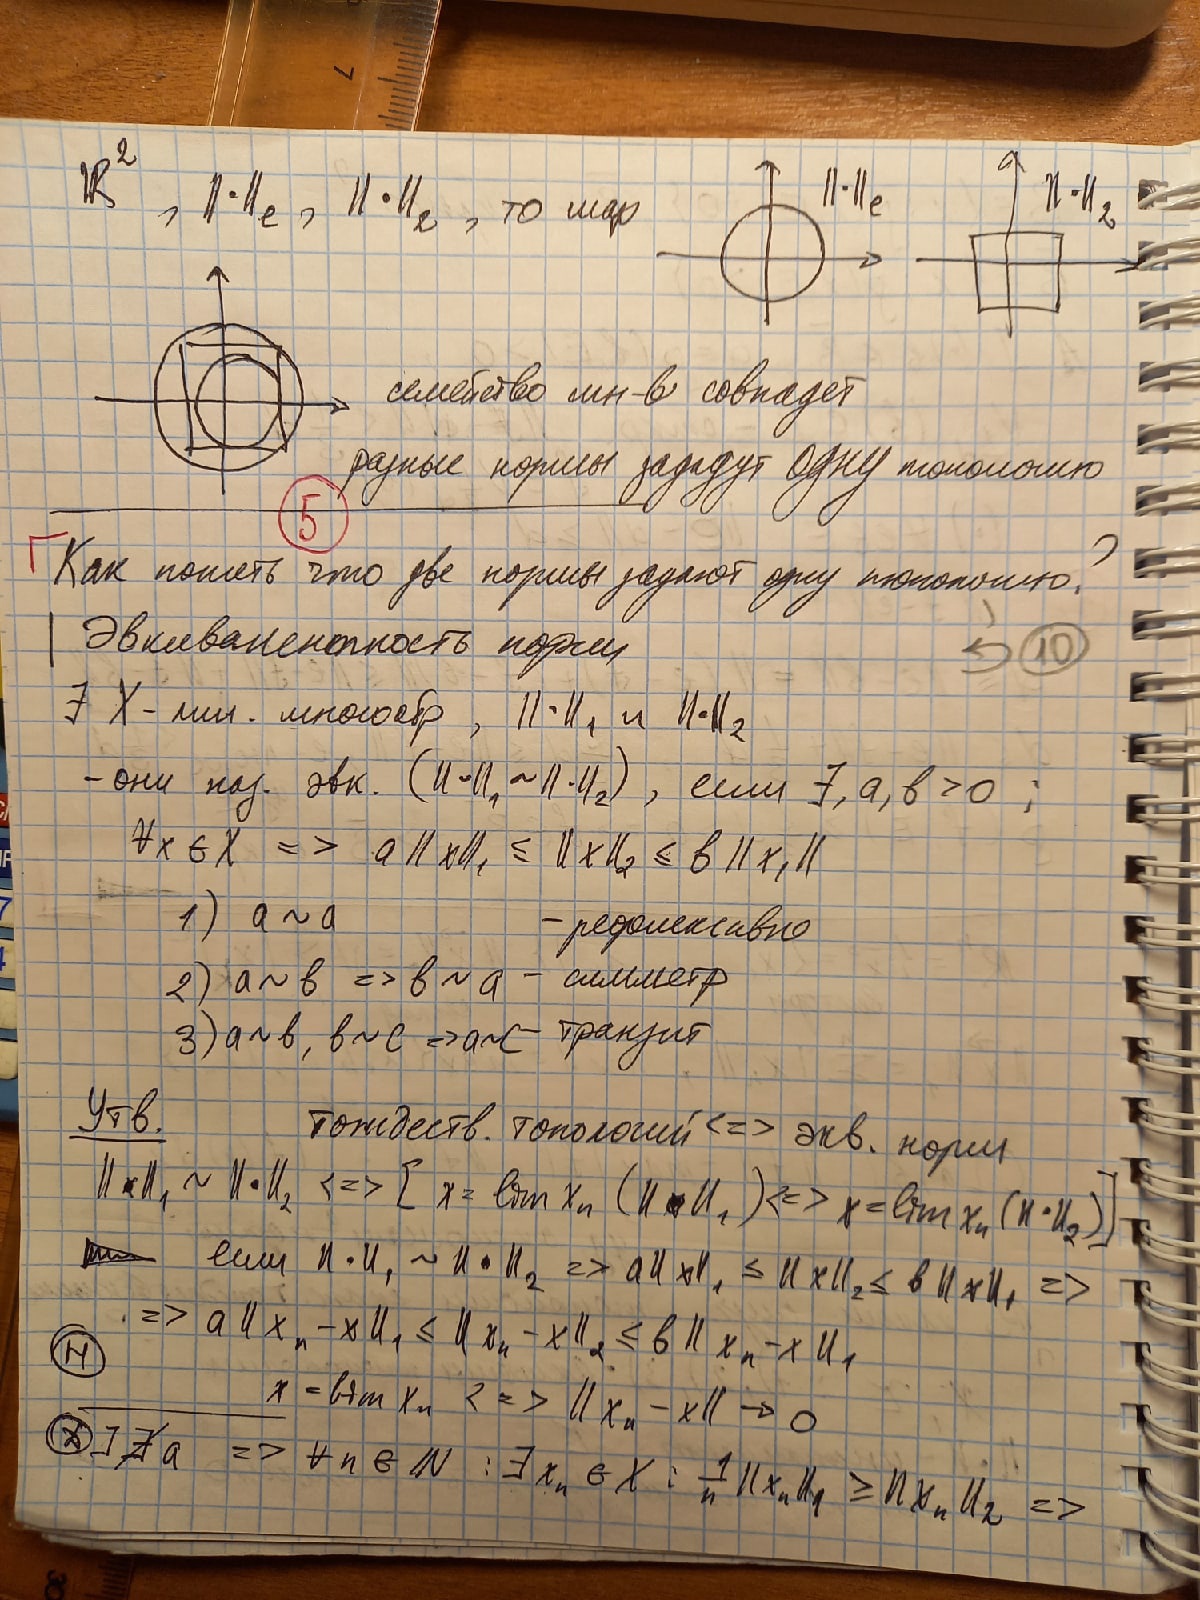 ℝ², ‖·‖e, ‖·‖₂, то шар
‖·‖e
‖·‖₂
семейство мн-в совпадет
разные нормы зададут ОДНУ топологию
5
Как понять что две нормы задают одну топологию?
Эквивалентность норм
10
∃ X - лин. многообр, ‖·‖₁ и ‖·‖₂
- они наз. экв. (‖·‖₁ ~ ‖·‖₂), если ∃, a, b > 0 ;
∀x ∈ X => a‖x‖₁ ≤ ‖x‖₂ ≤ b‖x₁‖
1) a ~ a - рефлексивно
2) a ~ b => b ~ a - симметр
3) a ~ b, b ~ c => a ~ c - транзит
Утв. тождеств. топологий <=> экв. норм
‖·‖₁ ~ ‖·‖₂ <=> [x = lim xₙ (‖·‖₁) <=> x = lim xₙ (‖·‖₂)]
если ‖·‖₁ ~ ‖·‖₂ => a‖x‖₁ ≤ ‖x‖₂ ≤ b‖x‖₁ =>
=> a‖xₙ - x‖₁ ≤ ‖xₙ - x‖₂ ≤ b‖xₙ - x‖₁
x = lim xₙ <=> ‖xₙ - x‖ → 0
∄ a => ∀n ∈ N : ∃ xₙ ∈ X : 1/n ‖xₙ‖₁ ≥ ‖xₙ‖₂ =>